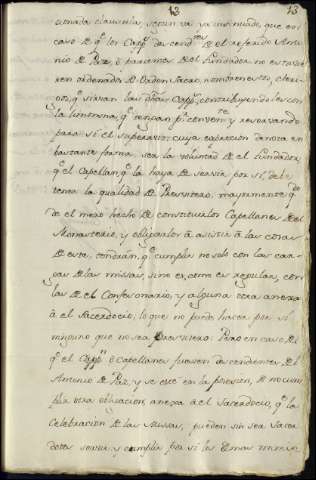 13 13
cionada clausula, segun va ya insinuado, que en
caso de q.e los Capp.s descend.tes de el referido Anto-
nio de Paz, ó parientes de el fundador no estuvie
ren ordenados de Orden Sacro, nombren estos, cleri-
que sirvan las Capp.s contribuyendoles con
la limosna, q.e tengan p.r conven.te y reservando
para sí el superavit; cuya expresion denota en
bastante forma, sea la volunt.d de el fundador,
q.e el Capellan, q.e la haya de servir por sí, debe
tener la qualidad de Presvitero, mayormente, q.do
de el mero hecho de constituirlos Capellanes de el
Monasterio, y obligarlos á asistir á las cosas
de este, tendrán, q.e cumplir no solo con las car-
gas de las missas, sino es, como es regular, con
las de el Confesonario, y alguna otra anexa
á el Sacerdocio, lo que no puede hacer por sí
ninguno que no sea Presvitero: Pero en caso de
q.e el Capp.n ó Capellanes fuesen descendientes de el
Antonio de Paz, y se esté en la posesion, de no cum-
plir otra obligacion, anexa á el Sacerdocio, q.e la
Celebracion de las Missas, pueden sin ser Sacer
dotes servir, y cumplir por sí los demas